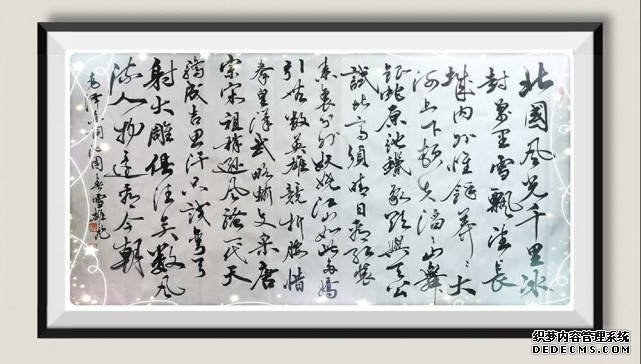 北国风光千里冰
封万里雪飘望长
城内外惟馀莽〻大
河上下顿失滔〻山舞
银蛇原驰蜡象欲与天公
试比高须晴日看红装
素裹分外妖娆江山如此多娇
引无数英雄竞折腰惜
秦皇汉武略输文采唐
宗宋祖稍逊风骚一代天
骄成吉思汗只识弯弓
射大雕俱往矣数风
流人物还看今朝
毛泽东词沁园春雪
织梦内容管理系统
DEDECMS.COM